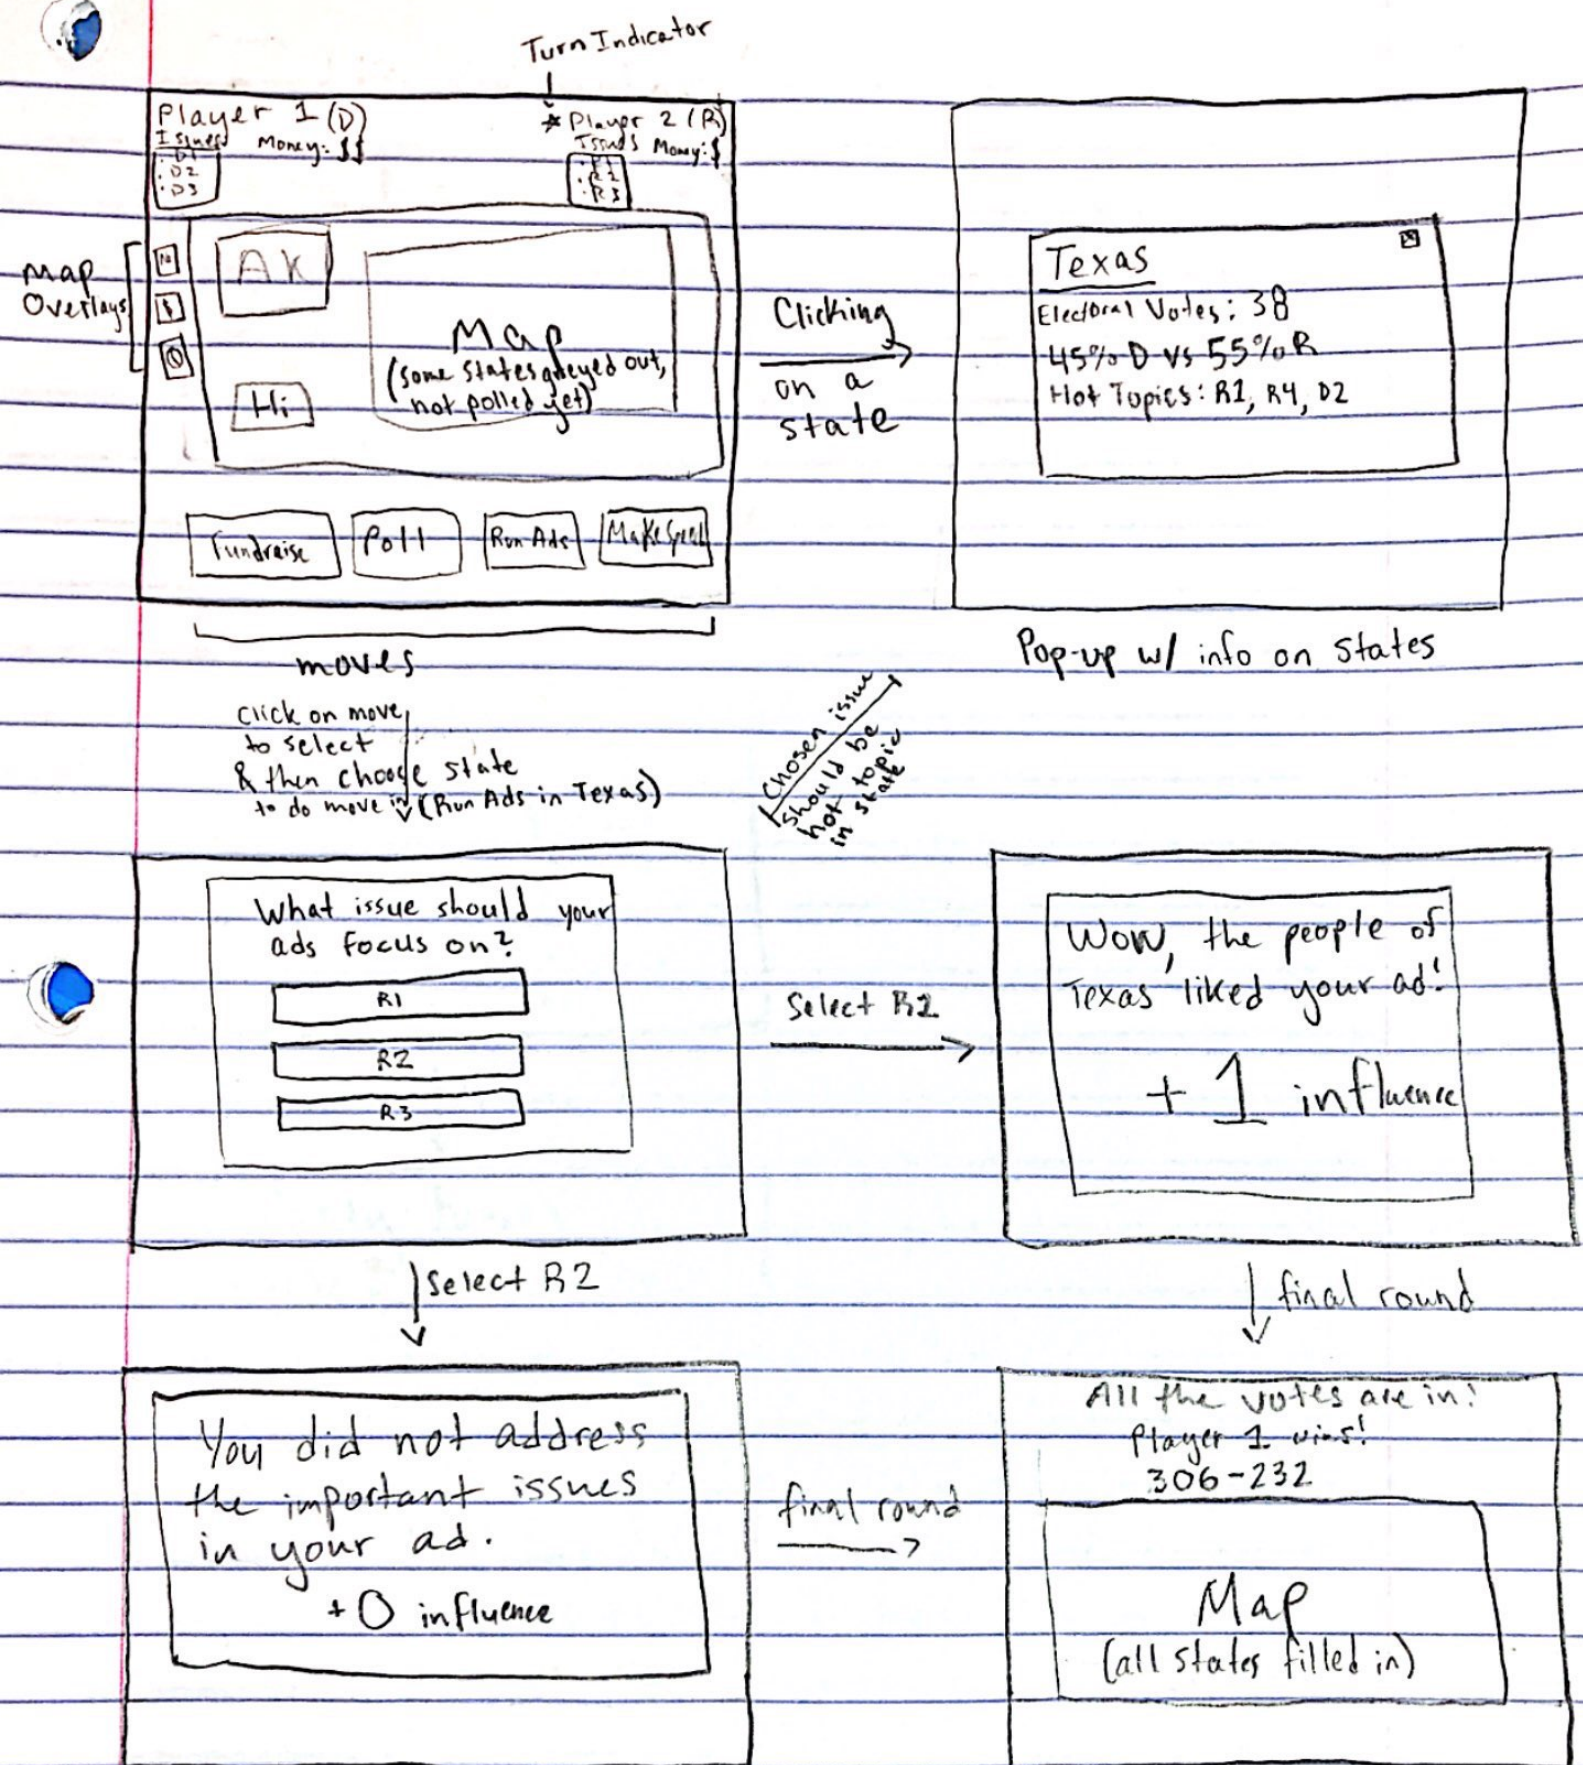 Turn Indicator
Player 1 (D)
Issues Money: $$
D1
D2
D3
* Player 2 (R)
Issues Money: $
R1
R2
R3
Map
Overlays
$
AK
Hi
Map
(some states greyed out,
not polled yet)
Fundraise
Poll
Run Ads
Make Speech
moves
Clicking
on a
state
Texas
Electoral Votes: 38
45% D vs 55% R
Hot Topics: R1, R4, D2
Pop-up w/ info on States
click on move
to select
& then choose state
to do move in (Run Ads in Texas)
Chosen issue
should be
hot topic
in state
What issue should your
ads focus on?
R1
R2
R3
Select R2
Wow, the people of
Texas liked your ad!
+ 1 influence
Select R2
final round
You did not address
the important issues
in your ad.
+0 influence
final round
All the votes are in!
Player 1 wins!
306-232
Map
(all states filled in)